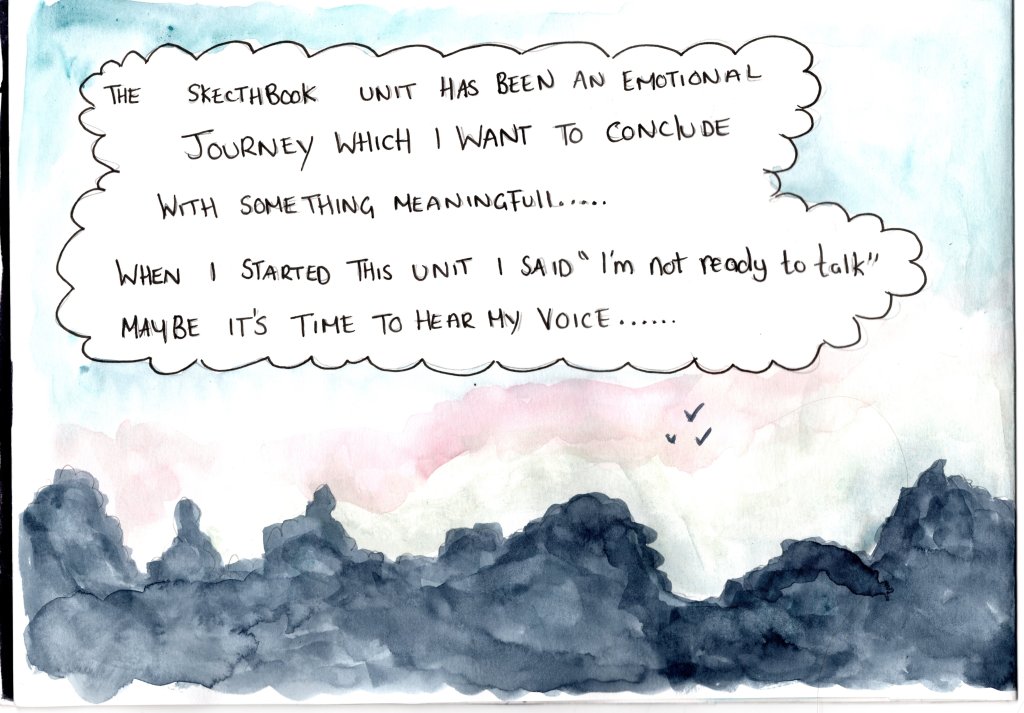 THE SKECTHBOOK UNIT HAS BEEN AN EMOTIONAL
JOURNEY WHICH I WANT TO CONCLUDE
WITH SOMETHING MEANINGFULL.....
WHEN I STARTED THIS UNIT I SAID "I'm not ready to talk"
MAYBE IT'S TIME TO HEAR MY VOICE......